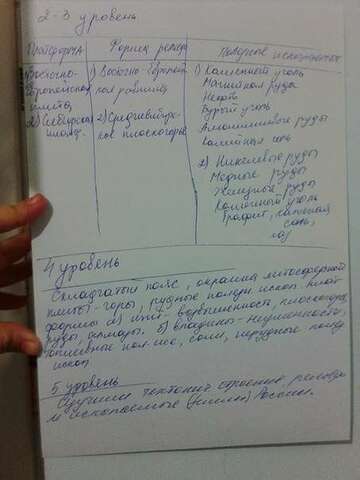 2-3 уровень
Платформа
Форма рельефа
Полезные ископаемые
1) Восточно-
Европейская
плита
2) Сибирская
плат.
1) Восточно-Европейс
кая равнина
2) Среднесибирс-
кое плоскогорье
1) Каменный уголь
Магнитная руды
Нефть
Бурый уголь
Алюминиевые руды
Калийная соль
2) Никелевые руды
Медные руды
Железные руды
Каменный уголь
Графит, каменная
соль,
газ
4 уровень
Складчатый пояс, окраина литосферной
плиты - горы, рудные полезн. ископ.
формы а) щит - возвышенность, плоскогорье,
руды, алмазы. б) впадины - низменности,
топливные пол. иск, соли, нерудные полез
ископ
5 уровень
Изучили тектонич строение, рельеф
и ископаемые России.